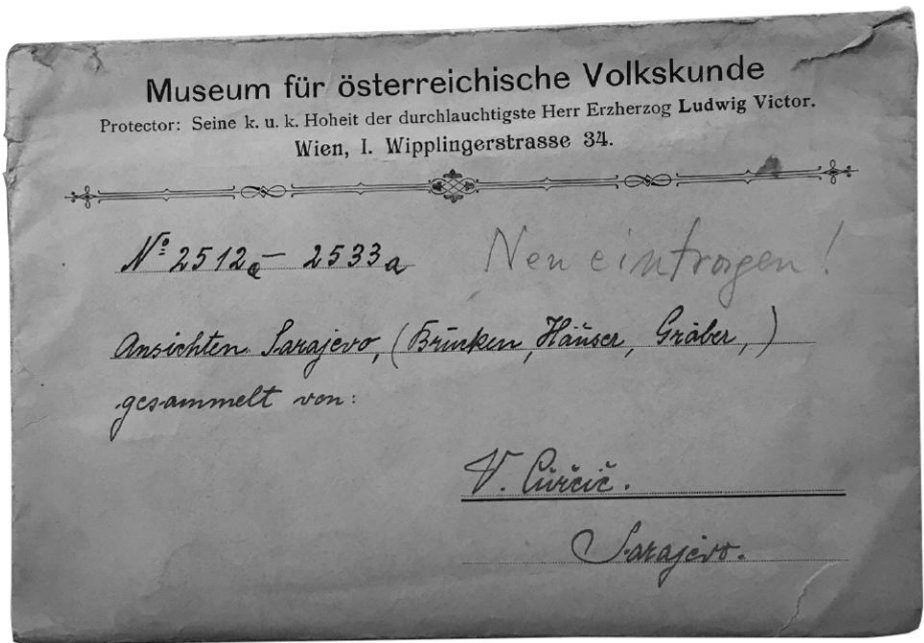 Museum für österreichische Volkskunde
Protector: Seine k. u. k. Hoheit der durchlauchtigste Herr Erzherzog Ludwig Victor.
Wien, I. Wipplingerstrasse 34.
No 2512a – 2533a Neu eintragen!
Ansichten Sarajevo, (Brücken, Häuser, Gräber,)
gesammelt von:
V. Čurčič.
Sarajevo.